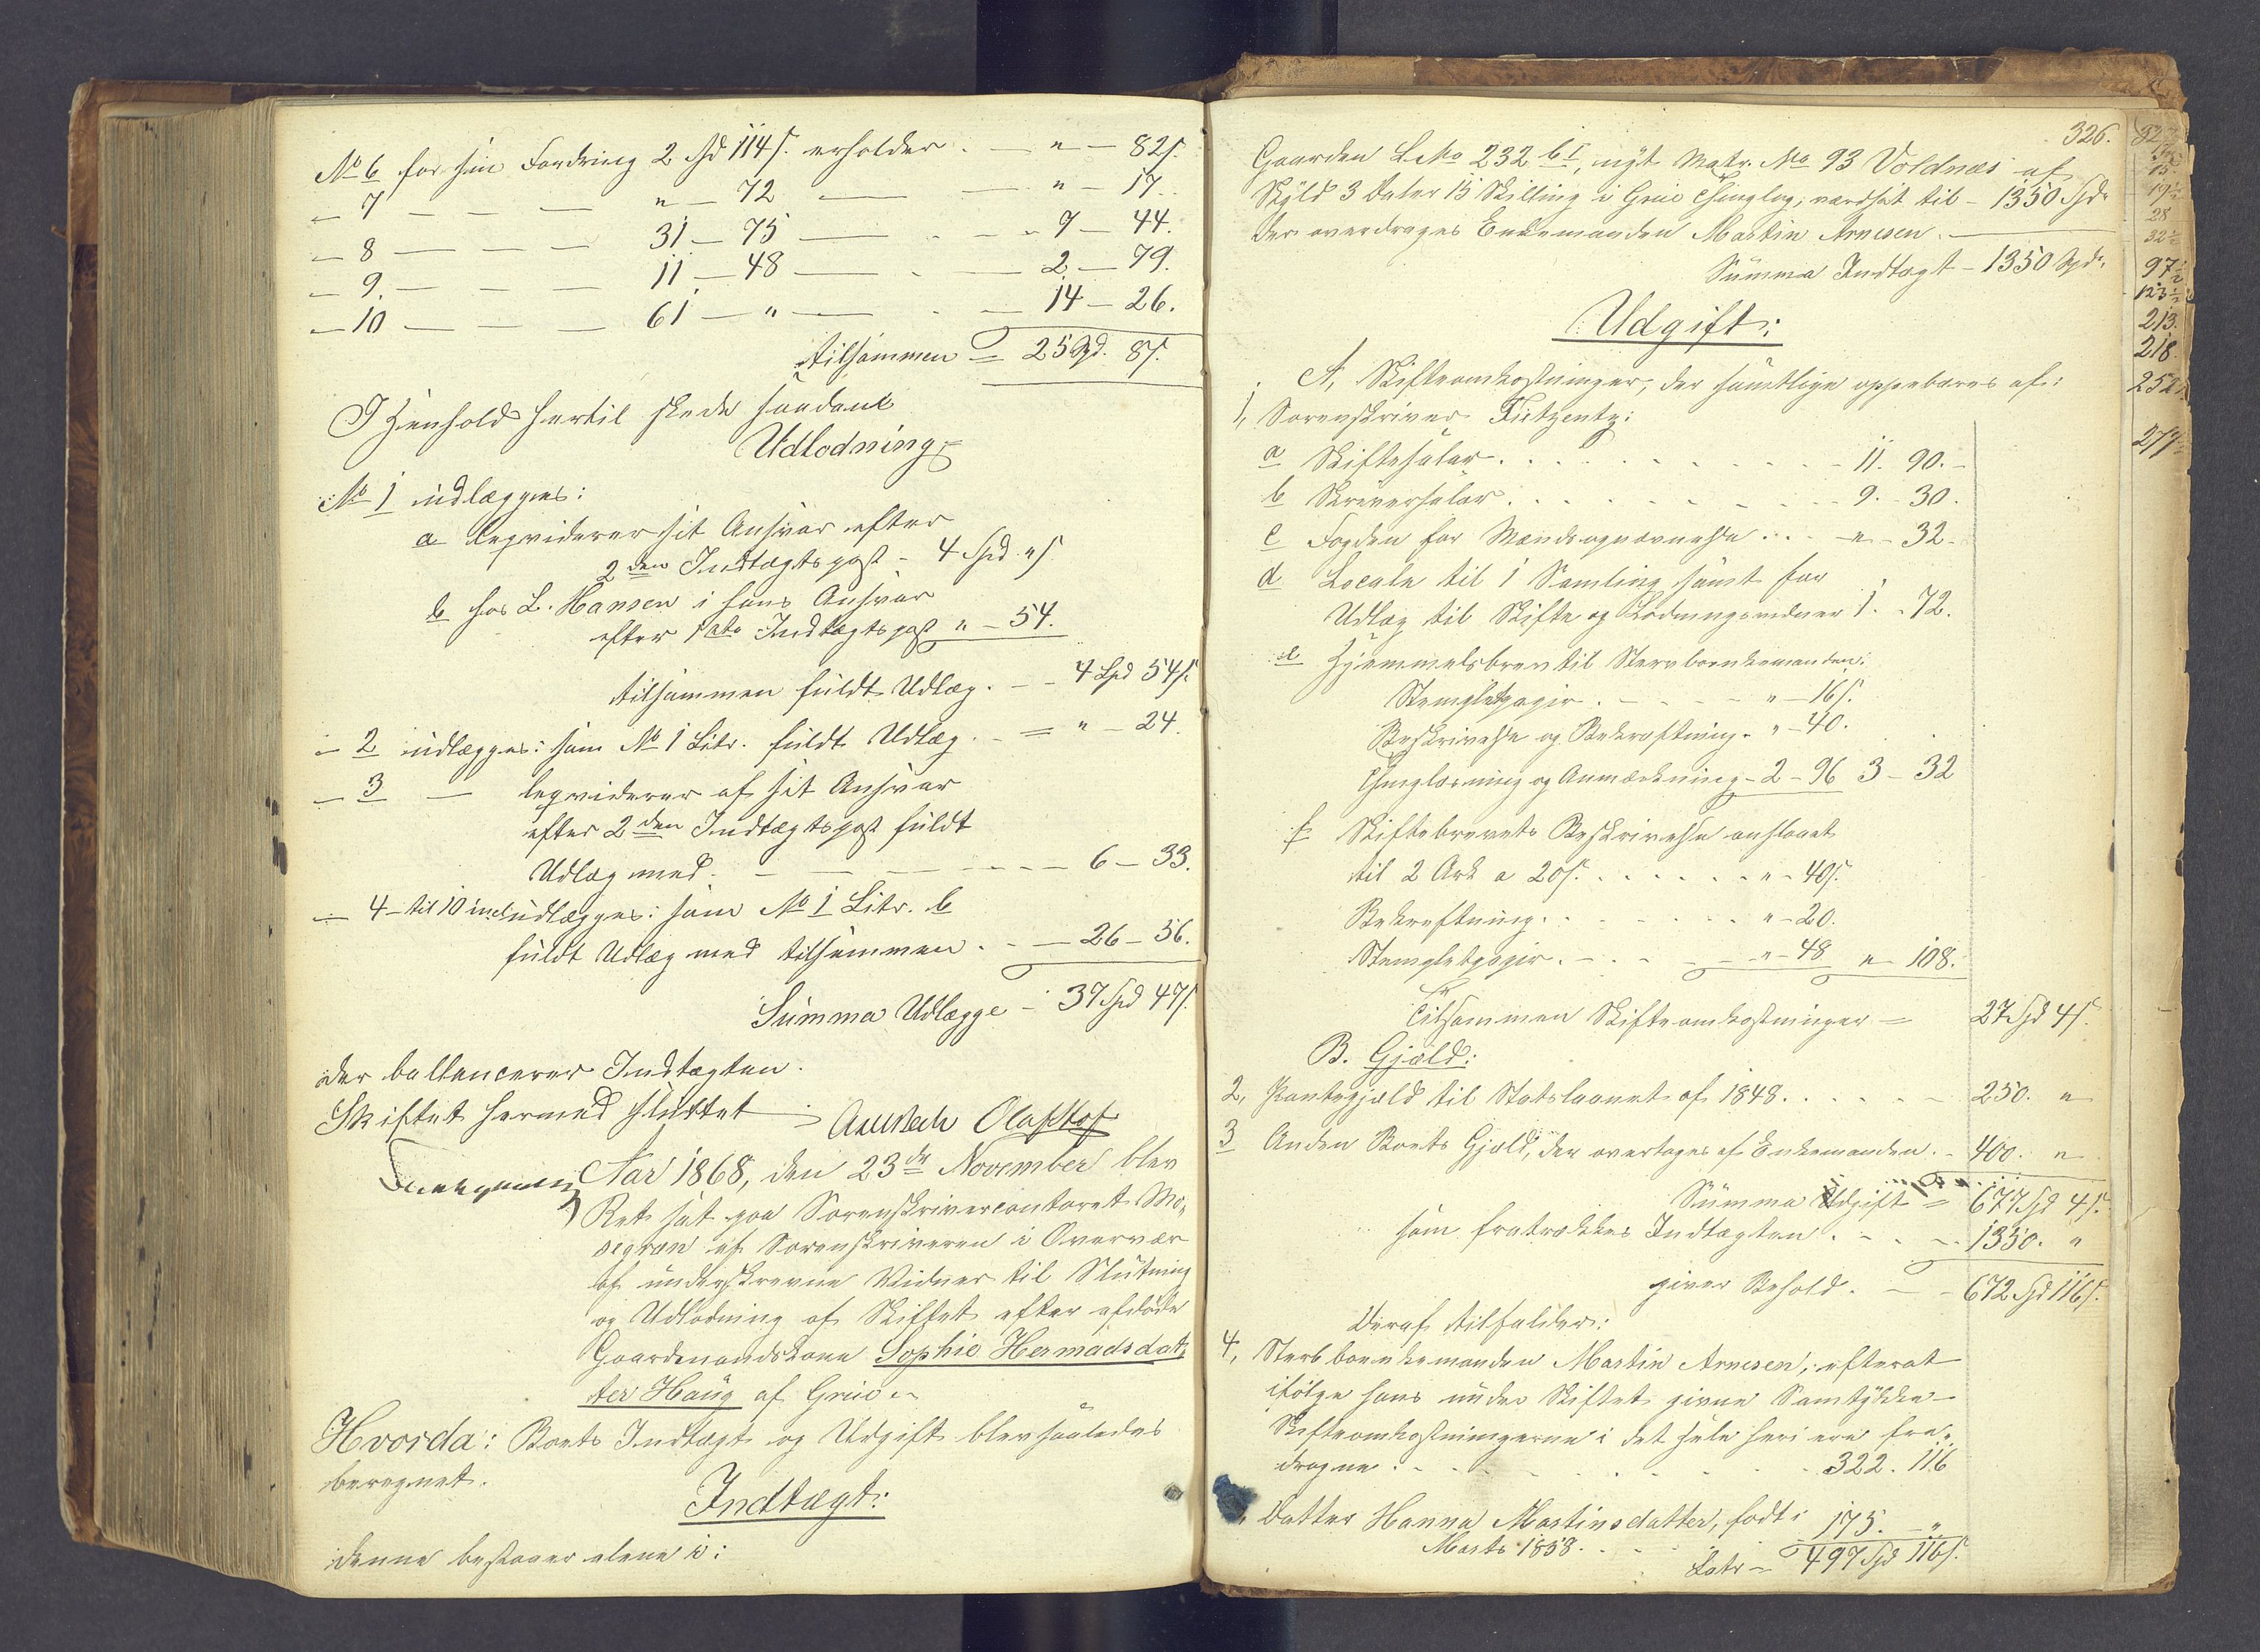 No 6 for sin Fordring 2 Spd 114 s. erholder. — " — 82 s.
" 7 — — — " — 72 — — " — 17.
" 8 — — — 31 — 75 — — 9 — 44.
" 9. — — — 11 — 48 — — 2 — 79.
" 10 — — — 61 — " — — 14 — 26.
tilsammen = 25 Spd. 8 s.
I Henhold hertil skede saadan
Udlodning
No 1 udlægges:
a liqviderer sit Ansvar efter
2den Indtægtspost - 4 Spd " s
b hos L. Hansen i hans Ansvar
efter 1ste Indtægtspost " - 54.
tilsammen fuldt Udlæg. — 4 Spd 54 s.
" 2 udlægges: som No 1 Litr. fuldt Udlæg. = " — 24.
" 3 — liqviderer af sit Ansvar
efter 2den Indtægtspost fuldt
Udlæg med. — — — — 6 — 33.
" 4 til 10 incl udlægges: som No 1 Litr. b
fuldt Udlæg med tilsammen. — 26 — 56.
Summa Udlægge - 37 Spd 47 s.
der ballancerer Indtægten.
Skiftet hermed sluttet
Aar 1868, den 23de November blev
Ret sat paa Sorenskrivercontoret Mo-
segran af Sorenskriveren i Overvær
af underskrevne Vidner til Slutning
og Udlodning af Skiftet efter afdøde
Gaardmandskone Sophie Hermadsdat-
ter Haug af Grue.
Hvorda: Boets Indtægt og Udgift blev saaledes
beregnet.
Indtægt:
denne bestaaer alene i:
326.
Gaarden L. No 232 b1, nyt Matr. No 93 Voldnæs af
Skyld 3 Daler 15 Skilling i Grue Thinglag, værdsat til - 1350 Spd.
der overdrages Enkemanden Martin Arnesen.
Summa Indtægt - 1350 Spd.
Udgift:
A, Skifteomkostninger, der samtlige oppebæres af:
1, Sorenskriver Fietzentz:
a Skiftesalær. . . . 11. 90.
b Skriversalær. . . . 9. 30.
c Fogden for Mændsopnævnelse . . . " - 32.
d Locale til 1 Samling samt for
Udlæg til Skifte og Lodningsvidner 1. - 72.
e Hjemmelsbrev til Stervboenkemanden:
Stempletpapir. . . . " - 16 s.
Beskrivelse og Bekræftning. " - 40.
Thinglæsning og Anmærkning - 2 - 96 3 - 32
f Skiftebrevets Beskrivelse anslaaet
til 2 Ark a 20 s. . . . . " - 40 s.
Bekræftning. . . . . " - 20.
Stempletpapir. . . . " - 48 " - 108.
Tilsammen Skifteomkostninger = 27 Spd 4 s.
B. Gjæld:
2, Pantegjæld til Statslaanet af 1848. . . . . 250. "
3 Anden Boets Gjæld, der overtages af Enkemanden. - 400. "
Summa Udgift = 677 Spd 4 s.
som fratrækkes Indtægten. . . . 1350. "
giver Behold. — 672 Spd 116 s.
Deraf tilfalder:
4, Sterbboenkemanden Martin Arnesen, efterat
ifølge hans under Skiftet givne Samtykke
Skifteomkostningerne i det hele heri ere fra-
dragne. . . . . 322. 116
Datter Hanna Martinsdatter, født i 175. "
Marts 1853. . .
Latr = 497 Spd 116 s.
97½
123½
213.
218.